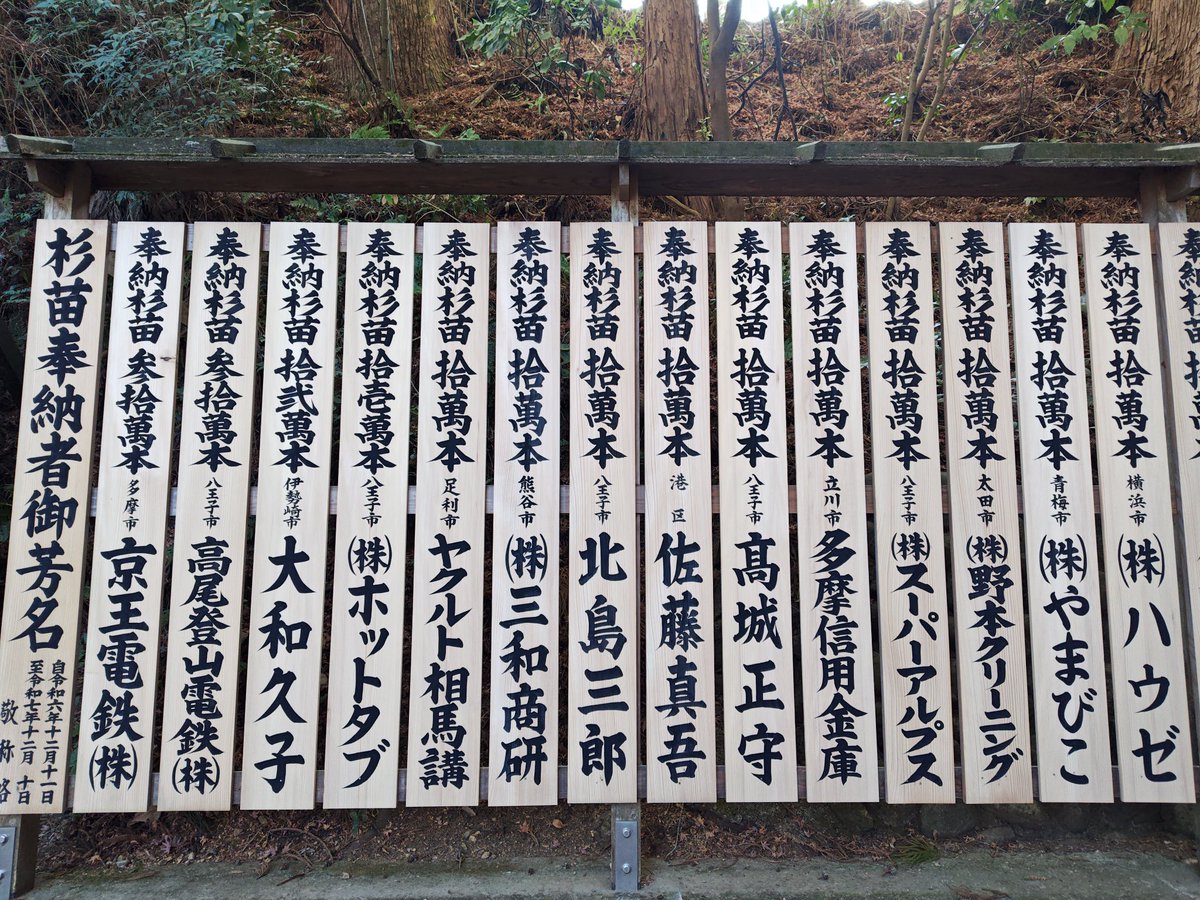 杉苗奉納者御芳名
自令和六年十二月十一日
至令和七年十二月 十日
敬称略
奉納杉苗 参拾萬本 多摩市 京王電鉄㈱
奉納杉苗 参拾萬本 八王子市 高尾登山電鉄㈱
奉納杉苗 拾弐萬本 伊勢崎市 大和久子
奉納杉苗 拾壱萬本 八王子市 ㈱ホットタブ
奉納杉苗 拾萬本 足利市 ヤクルト相馬講
奉納杉苗 拾萬本 熊谷市 ㈱三和商研
奉納杉苗 拾萬本 八王子市 北島三郎
奉納杉苗 拾萬本 港区 佐藤真吾
奉納杉苗 拾萬本 八王子市 髙城正守
奉納杉苗 拾萬本 立川市 多摩信用金庫
奉納杉苗 拾萬本 八王子市 ㈱スーパーアルプス
奉納杉苗 拾萬本 太田市 ㈱野本クリーニング
奉納杉苗 拾萬本 青梅市 ㈱やまびこ
奉納杉苗 拾萬本 横浜市 ㈱ハウゼ